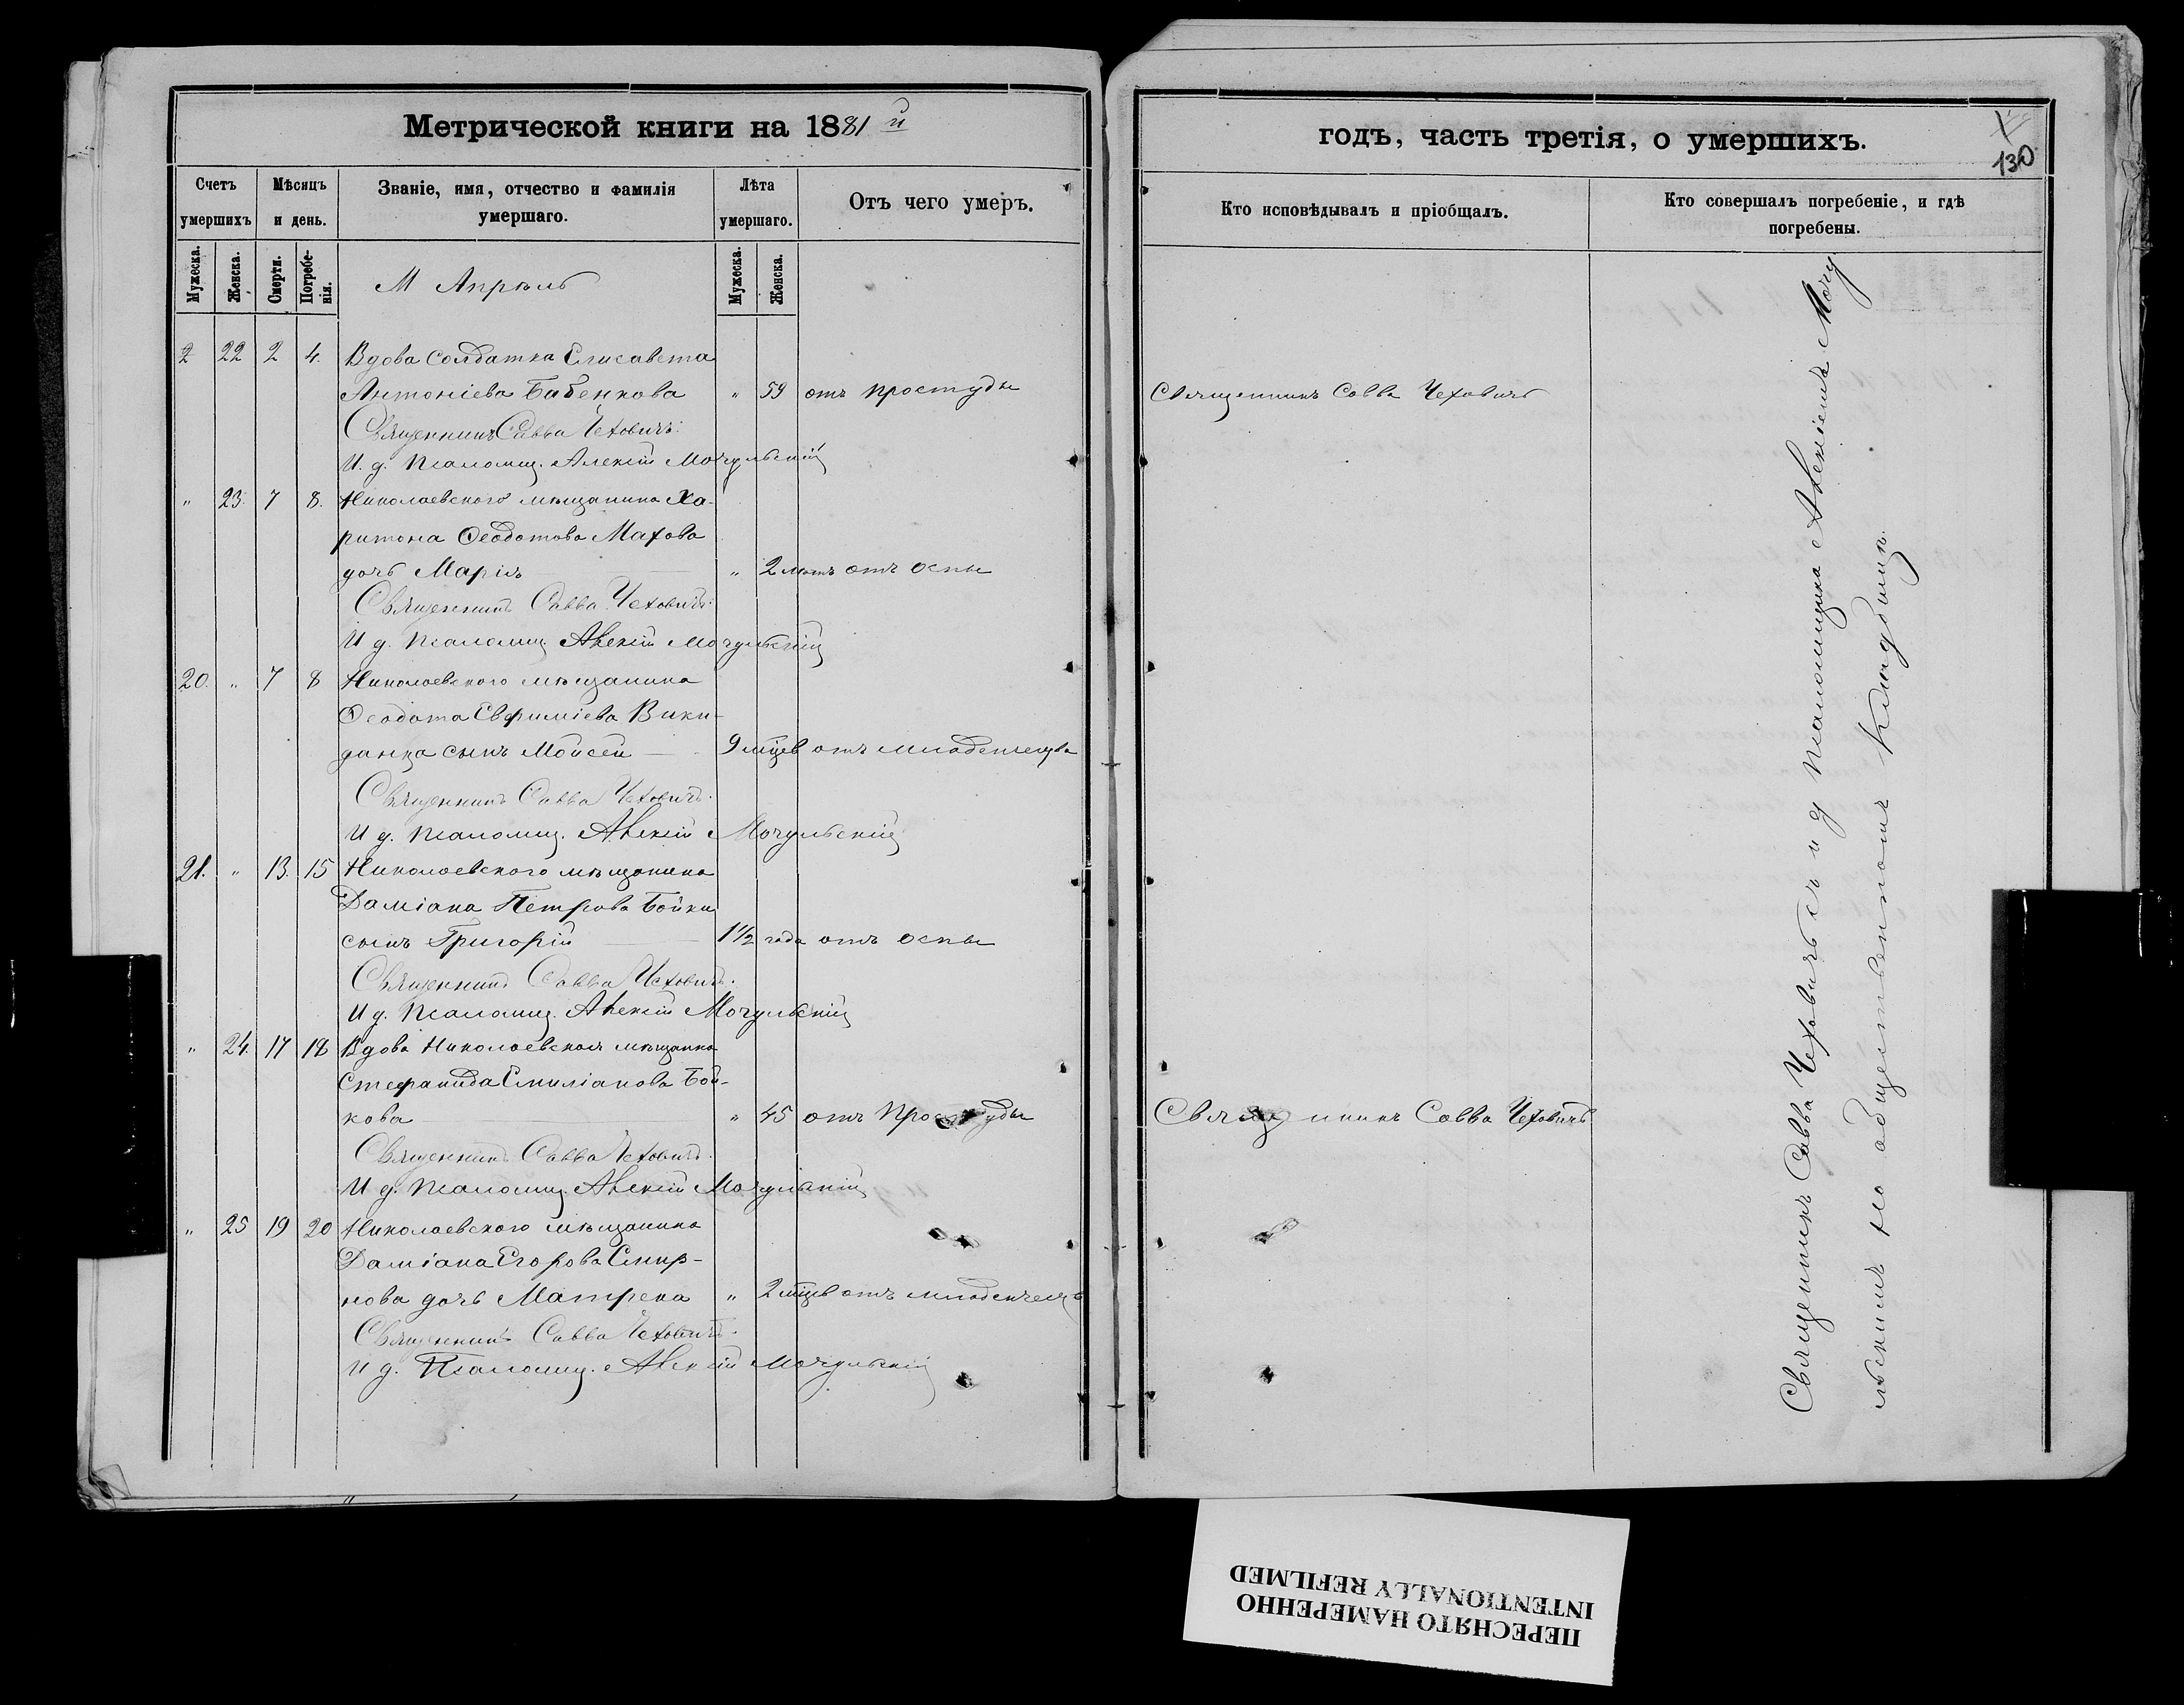 Метрической книги на 1881 й
годъ, часть третія, о умершихъ.
130
Счетъ умершихъ
Мѣсяцъ и день.
Званіе, имя, отчество и фамилія умершаго.
Лѣта умершаго.
Отъ чего умеръ.
Кто исповѣдывалъ и пріобщалъ.
Кто совершалъ погребеніе, и гдѣ погребены.
Мужеска. Женска. Смерти. Погребенія.
Мужеска. Женска.
М Апрѣль
22 2 4. Вдова солдатка Елисавета
Антоніева Бабенкова " 59 отъ простуды Священникъ Савва Чеховичъ
Священникъ Савва Чеховичъ.
И. д. Псаломщ. Алексій Мочульскій
" 23. 7 8. Николаевского мѣщанина Ха-
ритона Ѳеодотова Махова
дочь Марія " 2 лѣтъ отъ оспы
Священникъ Савва Чеховичъ.
И д. Псаломщ. Алексій Мочульскій
20. " 7 8 Николаевского мѣщанина
Ѳеодота Евфиміева Вики-
данца сынъ Моисей 9 мцев отъ младенчества
Священникъ Савва Чеховичъ.
И д. Псаломщ. Алексій Мочульскій
21. " 13. 15 Николаевского мѣщанина
Даміана Петрова Бойки
сынъ Григорій 1 1/2 года отъ оспы
Священникъ Савва Чеховичъ.
И д. Псаломщ. Алексій Мочульскій
" 24. 17 18 Вдова Николаевская мѣщанка
Стефанида Емиліанова Бой-
кова " 45 отъ простуды Священникъ Савва Чеховичъ
Священникъ Савва Чеховичъ.
И д. Псаломщ. Алексій Мочульскій
" 25 19 20 Николаевского мѣщанина
Даміана Егорова Смир-
нова дочь Матрена " 2 мцев отъ младенчест
Священникъ Савва Чеховичъ.
И д. Псаломщ. Алексій Мочульскій
Священникъ Савва Чеховичъ съ и д псаломщика Алексіемъ Мочу
льскимъ на общественномъ кладбищѣ.
ПЕРЕСНЯТО НАМЕРЕННО
INTENTIONALLY REFILMED